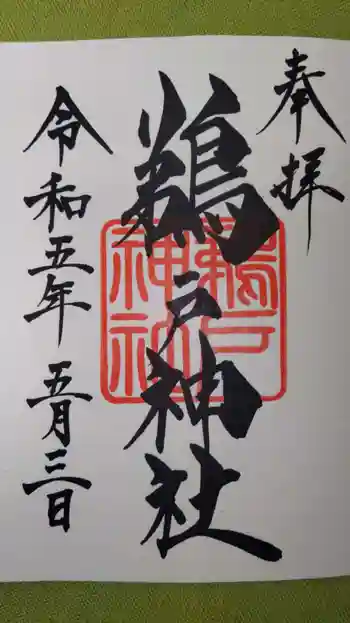 奉拝
鵜戸神社
鵜戸神社
令和五年 五月三日